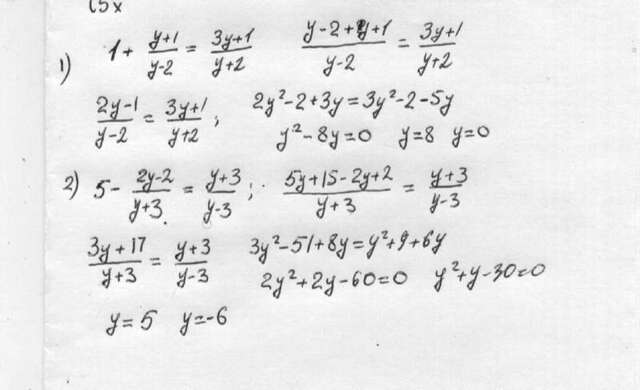 (5x
1) 1 + \frac{y+1}{y-2} = \frac{3y+1}{y+2} \frac{y-2+y+1}{y-2} = \frac{3y+1}{y+2}
\frac{2y-1}{y-2} = \frac{3y+1}{y+2}; 2y²-2+3y=3y²-2-5y
y²-8y=0 y=8 y=0
2) 5 - \frac{2y-2}{y+3} = \frac{y+3}{y-3}; \frac{5y+15-2y+2}{y+3} = \frac{y+3}{y-3}
\frac{3y+17}{y+3} = \frac{y+3}{y-3} 3y²-51+8y=y²+9+6y
2y²+2y-60=0 y²+y-30=0
y=5 y=-6